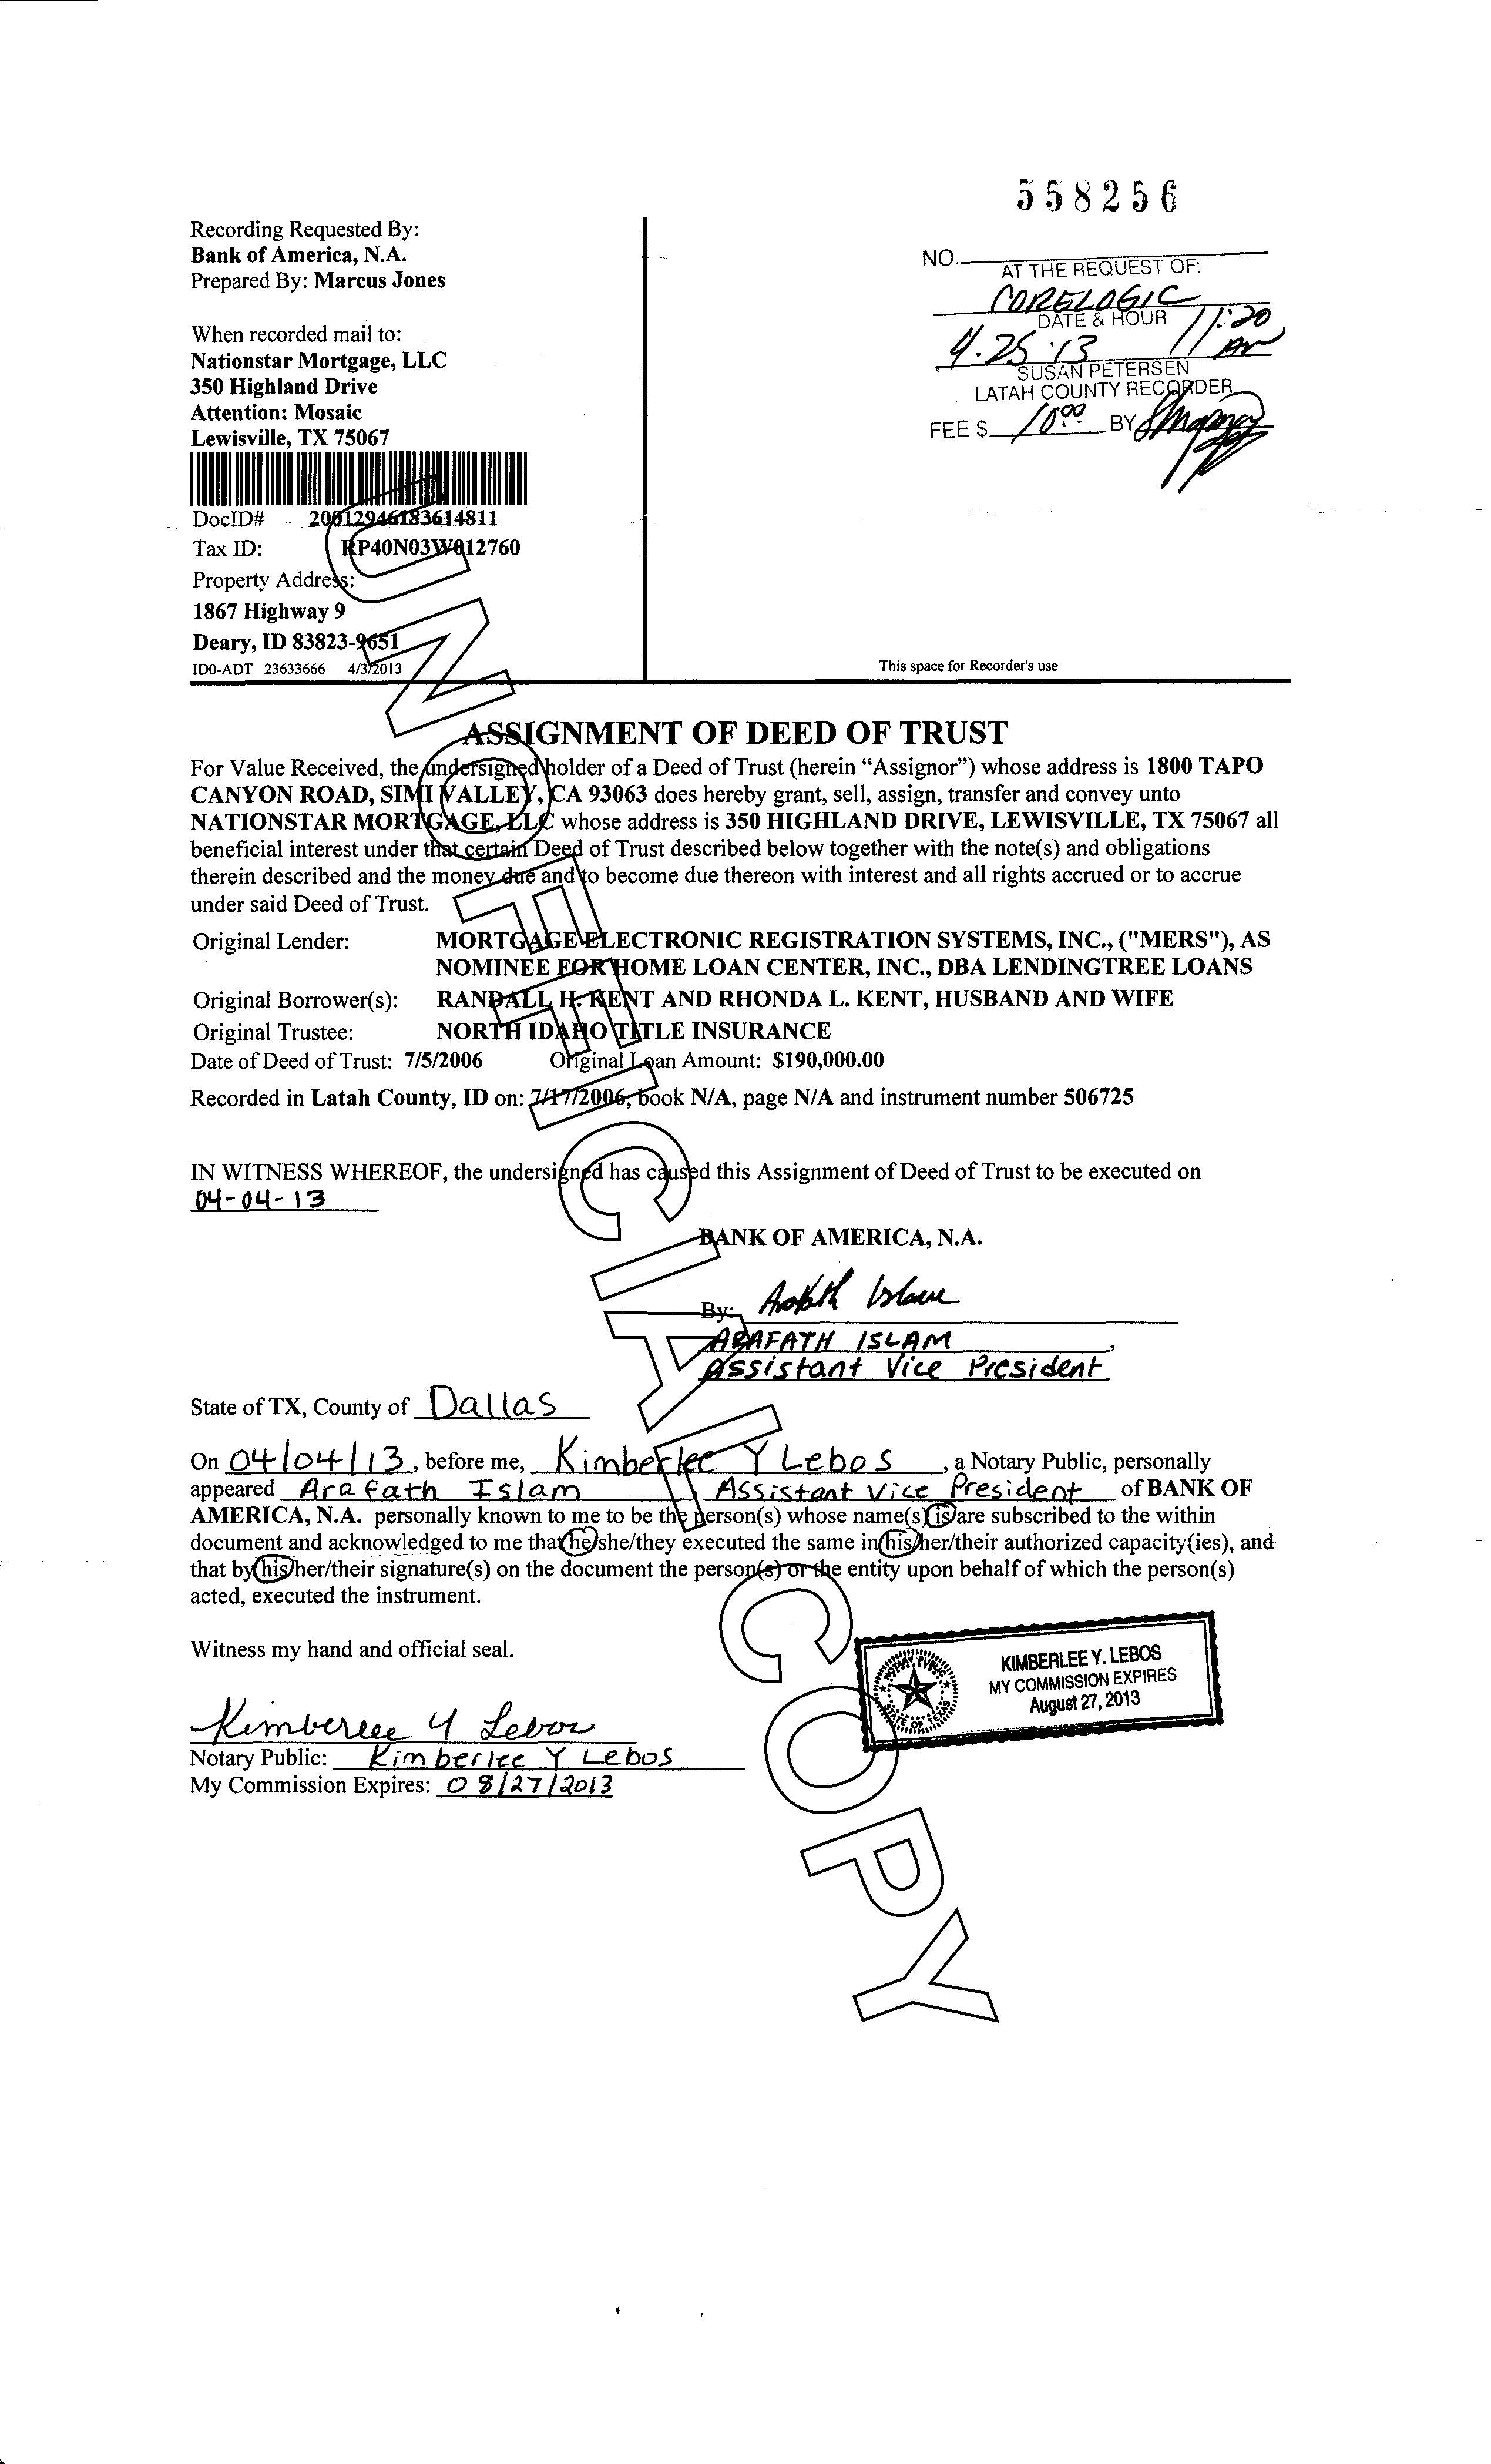 558256
Recording Requested By:
Bank of America, N.A.
Prepared By: Marcus Jones
When recorded mail to:
Nationstar Mortgage, LLC
350 Highland Drive
Attention: Mosaic
Lewisville, TX 75067
DocID# 20012946183614811
Tax ID: RP40N03W012760
Property Address:
1867 Highway 9
Deary, ID 83823-9651
ID0-ADT 23633666 4/3/2013
NO.
AT THE REQUEST OF:
CORELOGIC
DATE & HOUR
4.25.13 11:20 AM
SUSAN PETERSEN
LATAH COUNTY RECORDER
FEE $ 10.00 BY
This space for Recorder's use
ASSIGNMENT OF DEED OF TRUST
For Value Received, the undersigned holder of a Deed of Trust (herein “Assignor”) whose address is 1800 TAPO
CANYON ROAD, SIMI VALLEY, CA 93063 does hereby grant, sell, assign, transfer and convey unto
NATIONSTAR MORTGAGE, LLC whose address is 350 HIGHLAND DRIVE, LEWISVILLE, TX 75067 all
beneficial interest under that certain Deed of Trust described below together with the note(s) and obligations
therein described and the money due and to become due thereon with interest and all rights accrued or to accrue
under said Deed of Trust.
Original Lender: MORTGAGE ELECTRONIC REGISTRATION SYSTEMS, INC., ("MERS"), AS
NOMINEE FOR HOME LOAN CENTER, INC., DBA LENDINGTREE LOANS
Original Borrower(s): RANDALL H. KENT AND RHONDA L. KENT, HUSBAND AND WIFE
Original Trustee: NORTH IDAHO TITLE INSURANCE
Date of Deed of Trust: 7/5/2006 Original Loan Amount: $190,000.00
Recorded in Latah County, ID on: 7/17/2006, book N/A, page N/A and instrument number 506725
IN WITNESS WHEREOF, the undersigned has caused this Assignment of Deed of Trust to be executed on
04-04-13
BANK OF AMERICA, N.A.
By: Arafath Islam
ARAFATH ISLAM,
Assistant Vice President
State of TX, County of Dallas
On 04/04/13, before me, Kimberlee Y Lebos, a Notary Public, personally
appeared Arafath Islam, Assistant Vice President of BANK OF
AMERICA, N.A. personally known to me to be the person(s) whose name(s) is/are subscribed to the within
document and acknowledged to me that he/she/they executed the same in his/her/their authorized capacity(ies), and
that by his/her/their signature(s) on the document the person(s) or the entity upon behalf of which the person(s)
acted, executed the instrument.
Witness my hand and official seal.
KIMBERLEE Y. LEBOS
MY COMMISSION EXPIRES
August 27, 2013
NOTARY PUBLIC
STATE OF TEXAS
Kimberlee Y Lebos
Notary Public: Kimberlee Y Lebos
My Commission Expires: 08/27/2013
UNOFFICIAL COPY